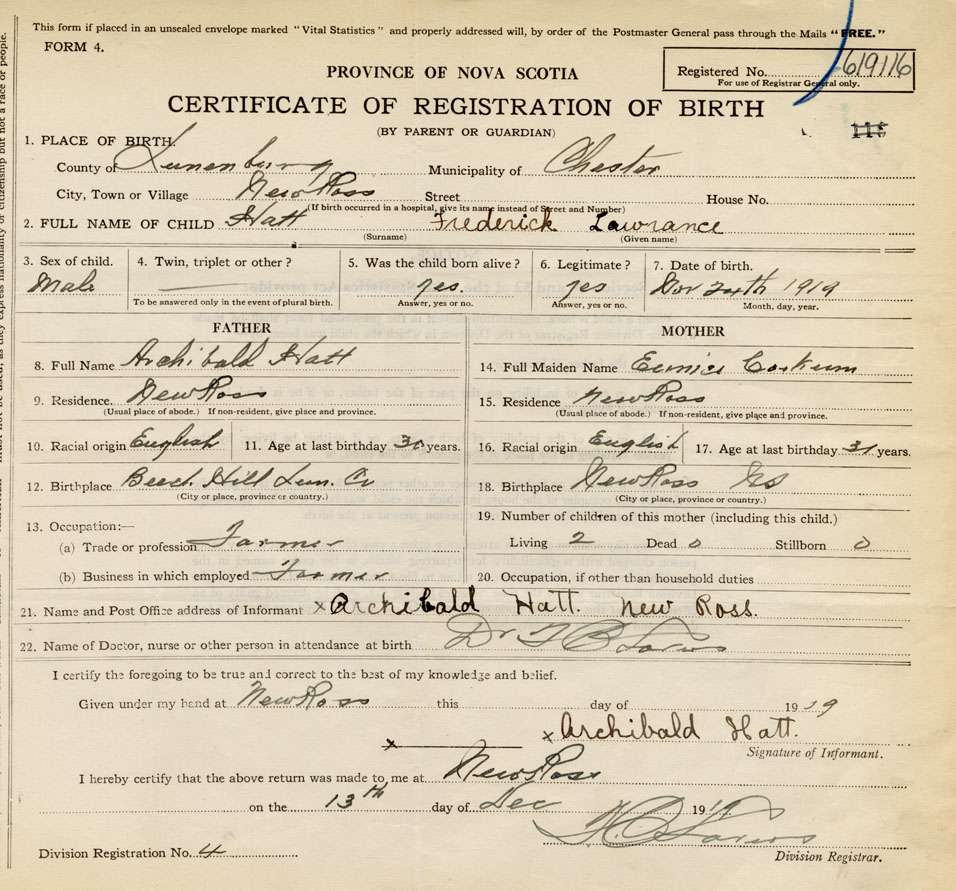 This form if placed in an unsealed envelope marked "Vital Statistics" and properly addressed will, by order of the Postmaster General pass through the Mails "FREE."
FORM 4.
Registered No. 619116
For use of Registrar General only.
PROVINCE OF NOVA SCOTIA
CERTIFICATE OF REGISTRATION OF BIRTH
(BY PARENT OR GUARDIAN)
1. PLACE OF BIRTH.
County of Lunenburg Municipality of Chester
City, Town or Village New Ross Street House No.
(If birth occurred in a hospital, give its name instead of Street and Number)
2. FULL NAME OF CHILD Hatt Frederick Lawrance
(Surname) (Given name)
3. Sex of child. 4. Twin, triplet or other? 5. Was the child born alive? 6. Legitimate? 7. Date of birth.
Male yes. yes 24th 1919
To be answered only in the event of plural birth. Answer, yes or no. Answer, yes or no. Month, day, year.
FATHER MOTHER
8. Full Name Archibald Hatt 14. Full Maiden Name Eunice
9. Residence. New Ross 15. Residence New Ross
(Usual place of abode.) If non-resident, give place and province. (Usual place of abode.) If non-resident, give place and province.
10. Racial origin English 11. Age at last birthday 30 years. 16. Racial origin English 17. Age at last birthday 31 years.
12. Birthplace Beech Hill Lun. Co 18. Birthplace New Ross NS
(City or place, province or country.) (City or place, province or country.)
13. Occupation:— 19. Number of children of this mother (including this child.)
(a) Trade or profession Farmer Living 2 Dead 0 Stillborn 0
(b) Business in which employed Farmer 20. Occupation, if other than household duties
21. Name and Post Office address of Informant x Archibald Hatt. New Ross.
22. Name of Doctor, nurse or other person in attendance at birth Dr
I certify the foregoing to be true and correct to the best of my knowledge and belief.
Given under my hand at New Ross this day of 19
x x Archibald Hatt.
Signature of Informant.
I hereby certify that the above return was made to me at New Ross
on the 13th day of Dec 1919.
Division Registration No. 4
Division Registrar.